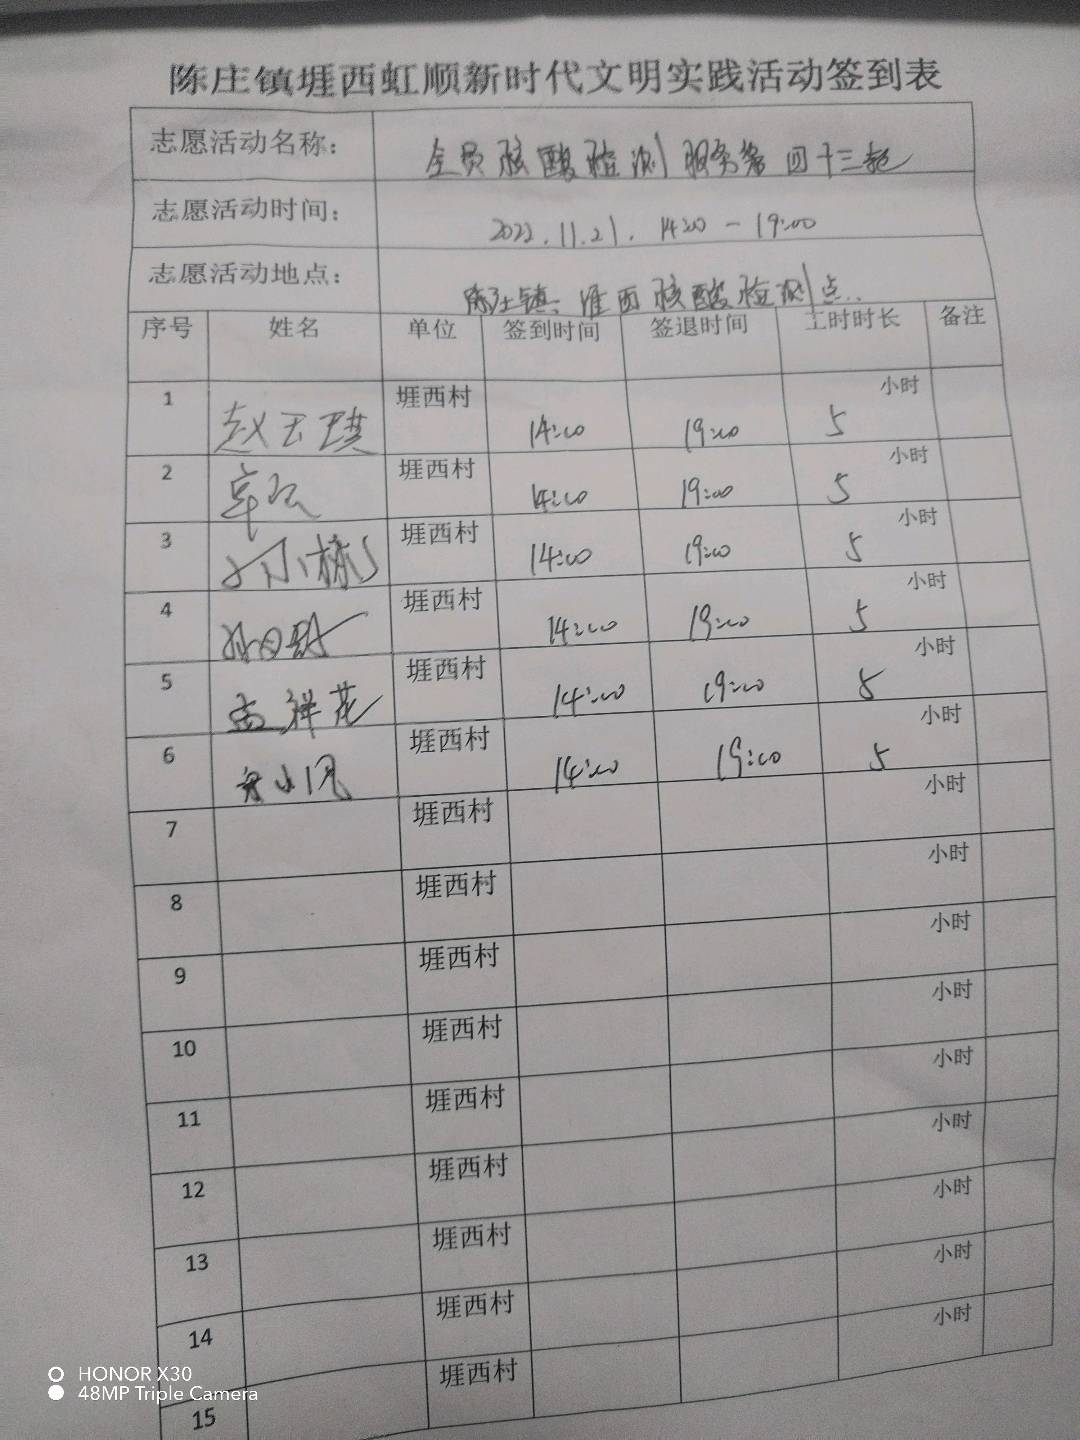 陈庄镇堐西虹顺新时代文明实践活动签到表
志愿活动名称： 全员核酸检测服务第四十三轮
志愿活动时间： 2022.11.21. 14:00-19:00
志愿活动地点： 陈庄镇 堐西核酸检测点
序号 姓名 单位 签到时间 签退时间 工时时长 备注
1 赵玉琪 堐西村 14:00 19:00 5 小时
2 堐西村 14:00 19:00 5 小时
3 堐西村 14:00 19:00 5 小时
4 堐西村 14:00 19:00 5 小时
5 孟祥花 堐西村 14:00 19:00 5 小时
6 堐西村 14:00 19:00 5 小时
7 堐西村 小时
8 堐西村 小时
9 堐西村 小时
10 堐西村 小时
11 堐西村 小时
12 堐西村 小时
13 堐西村 小时
14 堐西村 小时
15 堐西村 小时
HONOR X30
48MP Triple Camera